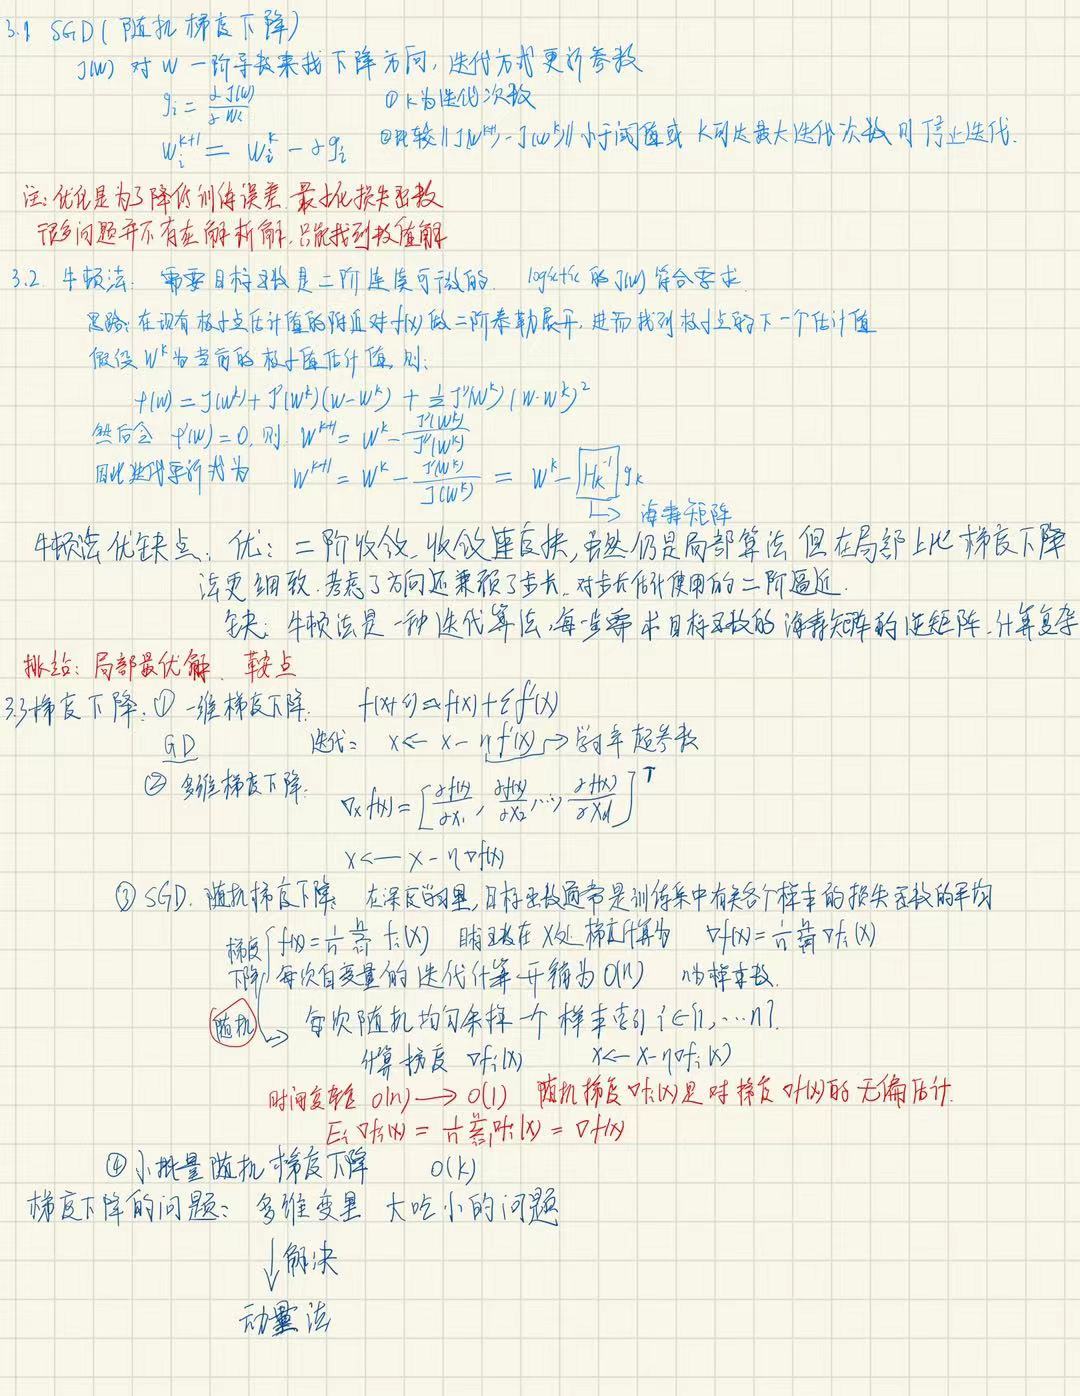 3.1 SGD(随机梯度下降)
J(w) 对 W 一阶导数来找下降方向,迭代方式更新参数
gᵢ = ∂J(w)/∂Wᵢ ① k为迭代次数
wᵢᵏ⁺¹ = wᵢᵏ - αgᵢ ②比较||J(Wᵏ⁺¹) - J(Wᵏ)||小于阈值或 k到达最大迭代次数时停止迭代.
注:优化是为了降低训练误差,最小化损失函数
很多问题并不存在解析解,只能找到数值解
3.2 牛顿法: 需要目标函数是二阶连续可微的. logistic 的J(w)符合要求.
思路:在现有极小点估计值的附近对f(x)做二阶泰勒展开,进而找到极小点的下一个估计值
假设 Wᵏ为当前的极小值估计值,则:
f(w) = J(Wᵏ) + J'(Wᵏ)(w-Wᵏ) + ½J''(Wᵏ)(w-wᵏ)²
然后令 f'(w)=0,则 Wᵏ⁺¹ = Wᵏ - J'(Wᵏ)/J''(Wᵏ)
因此迭代更新式为 Wᵏ⁺¹ = Wᵏ - J'(Wᵏ)/J(Wᵏ) = Wᵏ - Hₖ⁻¹ gₖ
↳ 海森矩阵
牛顿法优缺点: 优:二阶收敛,收敛速度快,虽然仍是局部算法 但在局部上比梯度下降
法更细致.考虑了方向还兼顾了步长,对步长估计使用的二阶逼近.
缺:牛顿法是一种迭代算法,每一步需求目标函数的海森矩阵的逆矩阵,计算复杂
挑战:局部最优解、鞍点
3.3梯度下降:① 一维梯度下降. f(x+ε)≈f(x)+εf'(x)
GD 迭代: x ← x - ηf'(x) → 学习率 超参数
② 多维梯度下降: ∇ₓf(x) = [∂f(x)/∂x₁, ∂f(x)/∂x₂, ..., ∂f(x)/∂xd]ᵀ
x ← x - η∇f(x)
③ SGD.随机梯度下降: 在深度学习里,目标函数通常是训练集中有关各个样本的损失函数的平均
梯度 f(x) = 1/n Σ fᵢ(x) 目标函数在 X处梯度计算为 ∇f(x) = 1/n Σ ∇fᵢ(x)
下降 每次自变量的迭代计算开销为 O(n) n为样本数.
随机 → 每次随机均匀采样一个样本索引 i∈{1,...n}.
计算梯度 ∇fᵢ(x) x ← x-η∇fᵢ(x)
时间复杂度 O(n) → O(1) 随机梯度∇fᵢ(x)是对梯度∇f(x)的无偏估计.
Eᵢ∇fᵢ(x) = 1/n Σ ∇fᵢ(x) = ∇f(x)
④小批量随机梯度下降 O(k)
梯度下降的问题: 多维变量 大吃小的问题
↓解决
动量法